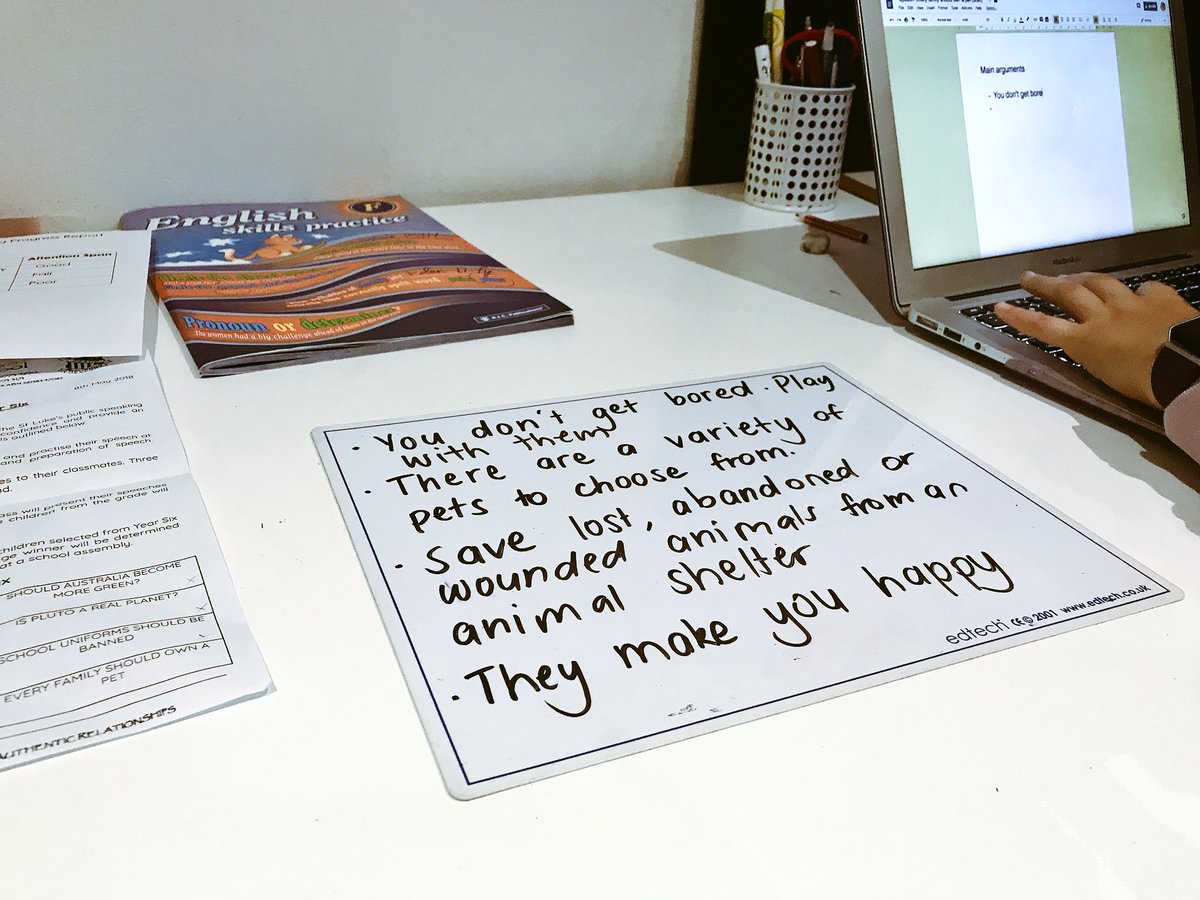 Main arguments
- You don't get bore
MacBook Air
English
skills practice
F
Pronoun or determiner?
The women had a big challenge ahead of them
R.I.C. Publications
Progress Report
Attention Span
Good
Fair
Poor
8th May 2018
the St Luke's public speaking
confidence and provide an
outlined below
and practise their speech at
and preparation of speech
to their classmates. Three
class will present their speeches
children from the grade will
children selected from Year Six
winner will be determined
at a school assembly.
SHOULD AUSTRALIA BECOME
MORE GREEN?
IS PLUTO A REAL PLANET?
SCHOOL UNIFORMS SHOULD BE
BANNED
EVERY FAMILY SHOULD OWN A
PET
AUTHENTIC RELATIONSHIPS
· You don't get bored. Play
with them
· There are a variety of
pets to choose from.
· Save lost, abandoned or
wounded animals from an
animal shelter
· They make you happy
edtech CE © 2001 www.edtech.co.uk